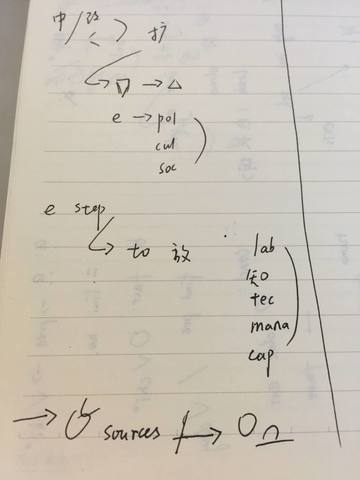 中/改 扩
→ ▽ → △
e → pol
cul
soc
e stop
→ to 放 lab
知
tec
mana
cap
→ sources → On